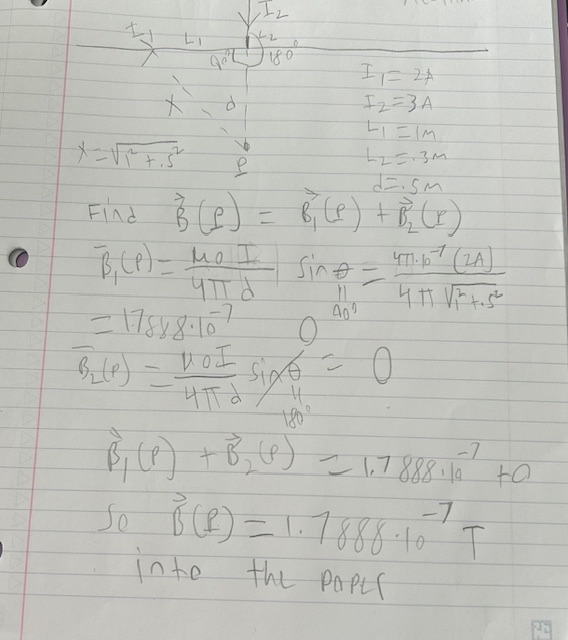 I₂
I₁ L₁ L₂
90° 180°
I₁ = 2A
X d I₂ = 3A
L₁ = 1m
X = √1² + .5² P L₂ = .3m
d = .5m
Find B⃗(P) = B⃗₁(P) + B⃗₂(P)
B̅₁(P) = μ0 I / 4π d sin θ = 4π·10⁻⁷ (2A) / 4π √1² + .5²
90°
= 1.7888·10⁻⁷ 0
B̅₂(P) = μ0 I / 4π d sin θ = 0
180°
B⃗₁(P) + B⃗₂(P) = 1.7888·10⁻⁷ + 0
So B⃗(P) = 1.7888·10⁻⁷ T
into the paper